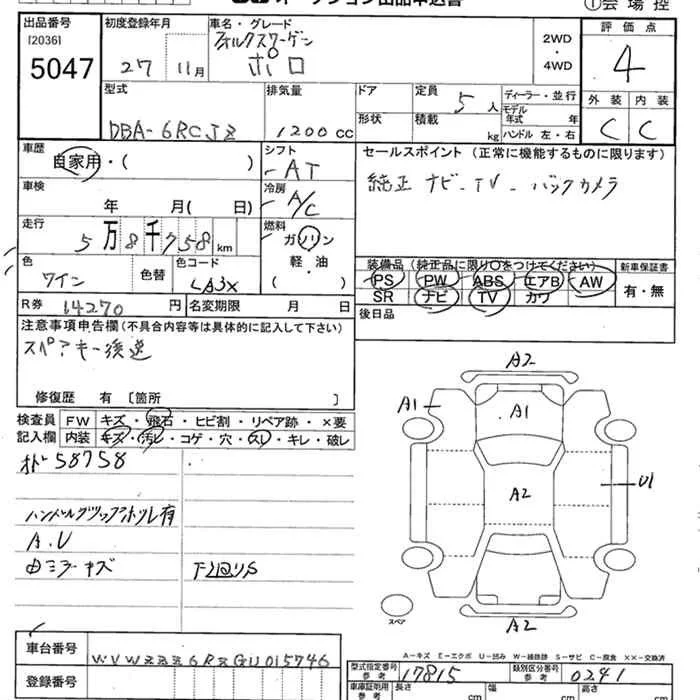 オークション出品申込書
①会場控
出品番号
[2036]
5047
初度登録年月
27 11月
車名・グレード
フォルクスワーゲン
ポロ
2WD
・
4WD
評価点
4
外装 内装
C C
型式
DBA-6RCJZ
排気量
1200cc
ドア
形状
定員 5人
積載 kg
ディーラー・並行
モデル年式 年
ハンドル 左・右
車歴
自家用・( )
シフト
AT
セールスポイント (正常に機能するものに限ります)
純正 ナビ-TV-バックカメラ
車検
年 月( 日)
冷房
A/C
走行
5万8千758km
燃料
ガソリン
軽・油
( )
色
ワイン
色替
色コード
LA3X
装備品 (純正品に限り○をつけてください)
PS PW ABS エアB AW
SR ナビ TV カワ
新車保証書
有・無
R券 14270円
名変期限 月 日
後日品
注意事項申告欄(不具合内容等は具体的に記入して下さい)
スペアキー後送
修復歴 有 〔箇所 〕
検査員
記入欄
FW キズ・飛石・ヒビ割・リペア跡・×要
内装 キズ・汚レ・コゲ・穴・スレ・キレ・破レ
58758
有
A.U
ミラーキズ
A2
A1
A1
A2
U1
A2
スペア
A-キズ E-エクボ U-凹み W-補修跡 S-サビ C-腐食 XX-交換済
車台番号
WVWZZZ6RZGU015746
登録番号
型式指定番号
参考
17815
類別区分番号
参考
0241
車庫証明用
参考
長さ cm
幅 cm
高さ cm